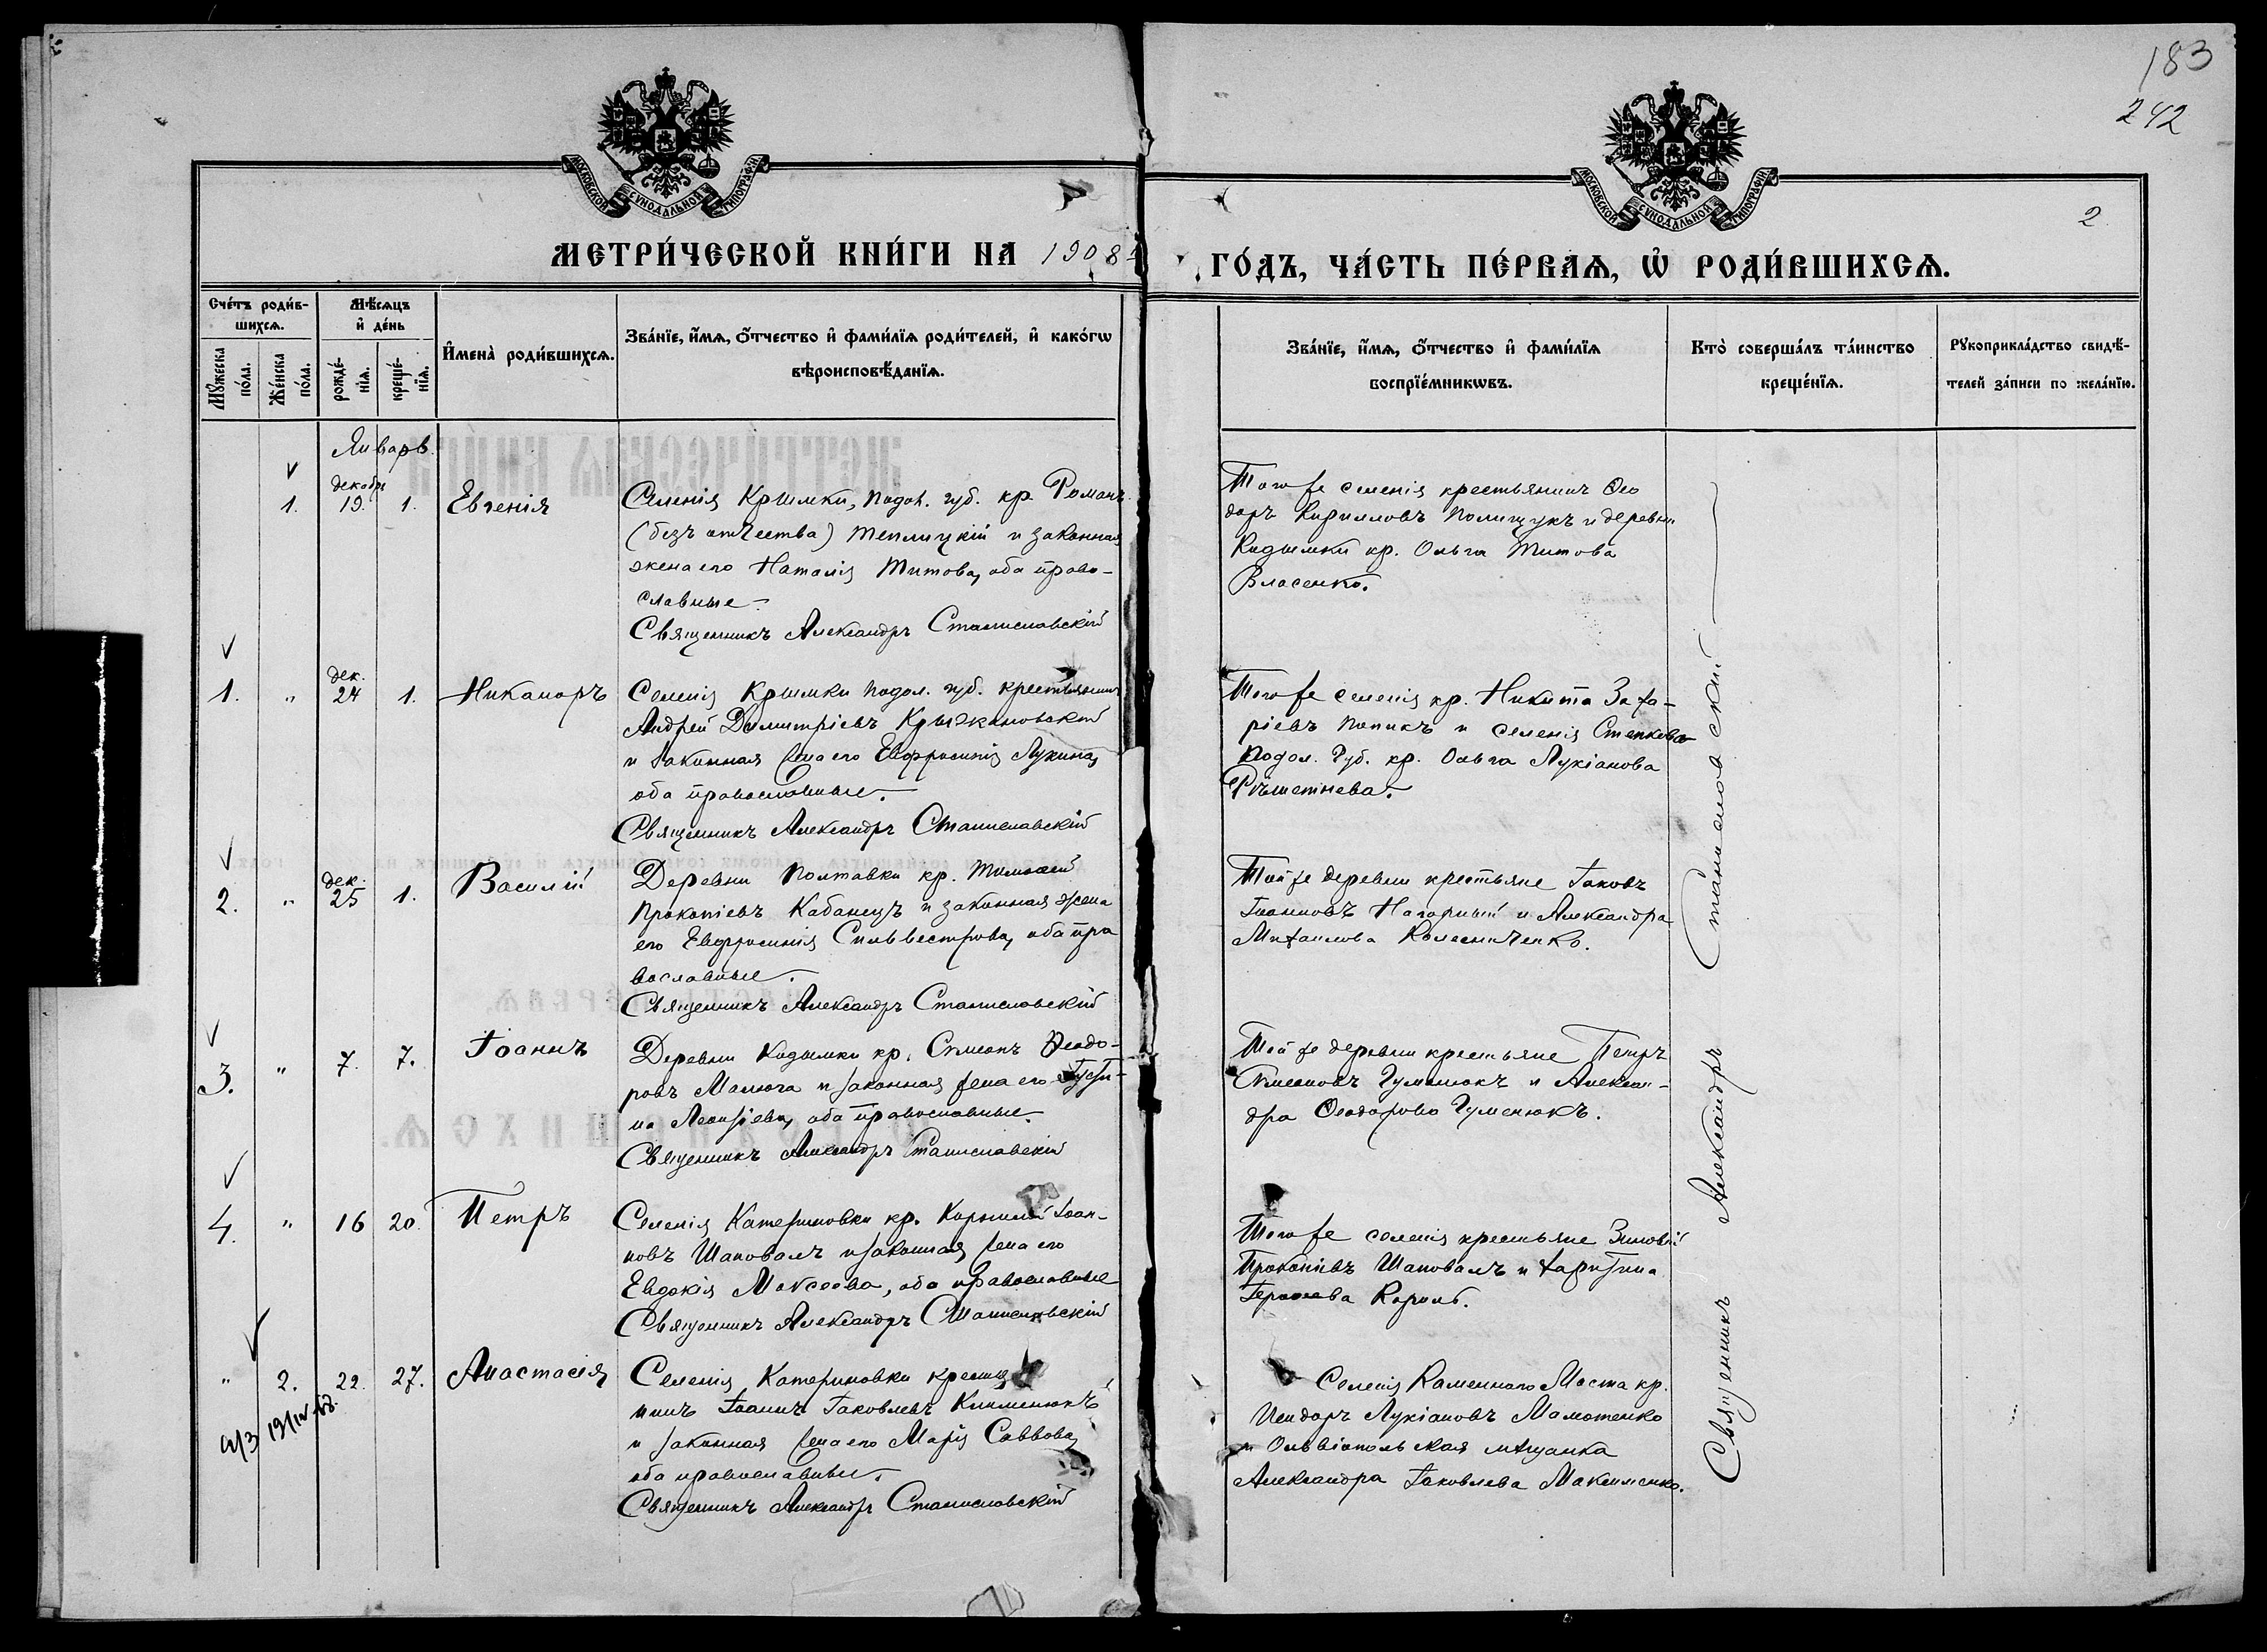 183
242
2
МОСКОВСКОЙ СѴНОДАЛЬНОЙ ТИПОГРАФІИ
МОСКОВСКОЙ СѴНОДАЛЬНОЙ ТИПОГРАФІИ
МЕТРИ́ЧЕСКОЙ КНИ́ГИ НА 1908
ГО́ДЪ, ЧА́СТЬ ПЕ́РВАѦ, Ѡ҆ РОДИ́ВШИХСѦ.
Сче́тъ роди́в-
шихсѧ.
Мꙋ́жеска
по́ла.
Же́нска
по́ла.
Мѣ́сѧцъ
и҆ де́нь
рожде́-
нїѧ.
креще́-
нїѧ.
И҆мена̀ роди́вшихсѧ.
Зва́нїе, и҆́мѧ, ѻ҆́тчество и҆ фами́лїѧ роди́телей, и҆ како́гѡ
вѣроисповѣ́данїѧ.
Зва́нїе, и҆́мѧ, ѻ҆́тчество и҆ фами́лїѧ
воспрїе́мникѡвъ.
Кто̀ соверша́лъ та́инство
креще́нїѧ.
Рꙋкоприкла́дство свидѣ́-
телей за́писи по жела́нїю.
Январь.
1. декабр 19. 1. Евгенія
Селенія Крымки, подол. губ. кр. Романъ
(безъ отчества) Теплицкій и законная
жена его Наталія Титова, оба право-
славные.
Священникъ Александръ Станиславскій
Того же селенія крестьянинъ Ѳео
доръ Кирилловъ Полищукъ и деревни
Кидымки кр. Ольга Титова
Власенко.
1. " дек. 24 1. Никаноръ
Селенія Крымки подол. губ. крестьянинъ
Андрей Димитріевъ Крыжановскій
и законная жена его Евфросинія Лукина,
оба православные.
Священникъ Александръ Станиславскій
Того же селенія кр. Никита Заха-
ріевъ Попикъ и селенія Степкова
подол. губ. кр. Ольга Лукіанова
Рѣшетнева.
2. " дек. 25 1. Василій
Деревни Полтавки кр. Тимофей
Прокопіевъ Кабанецъ и законная жена
его Евфросинія Сильвестрова, оба пра
вославные.
Священникъ Александръ Станиславскій
Той же деревни крестьяне Іаковъ
Іоанновъ Нагорный и Александра
Михаилова Колесниченко.
3. " 7. 7. Іоаннъ
Деревни Кидымки кр. Симеонъ Ѳеодо-
ровъ Малюга и законная жена его Іусти-
на Леонтіева, оба православные.
Священникъ Александръ Станиславскій
Той же деревни крестьяне Петръ
Симеоновъ Гуменюкъ и Алексан-
дра Ѳеодорова Гуменюкъ.
4. " 16 20. Петръ
Селенія Катериновки кр. Корнилій Іоан-
новъ Шаповалъ и законная жена его
Евдокія Моксеева, оба православные
Священникъ Александръ Станиславскій
Того же селенія крестьяне Зиновій
Прокопіевъ Шаповалъ и Харитина
Король.
" 2. 22. 27. Анастасія
Селенія Катериновки крестья
нинъ Іоаннъ Іаковлевъ Клименюкъ
и законная жена его Марія Саввова,
оба православные.
Священникъ Александръ Станиславскій
Селенія Каменнаго Моста кр.
Исидоръ Лукіановъ Мамотенко
и Ольвіопольская мѣщанка
Александра Іаковлева Максименко.
Священникъ Александръ Станиславскій